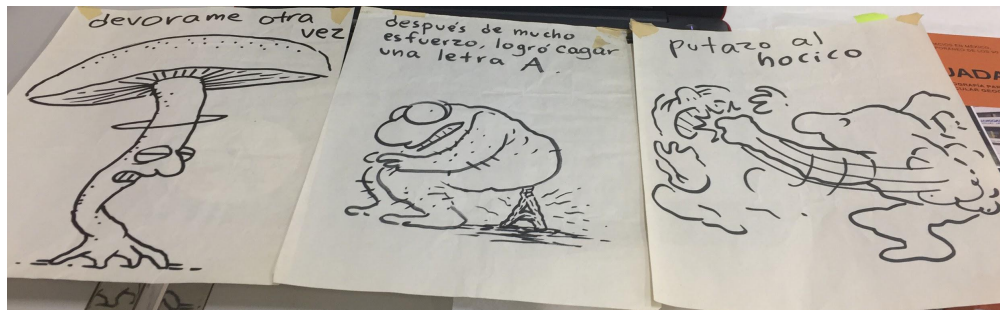 devorame otra
vez
después de mucho
esfuerzo, logró cagar
una letra A.
putazo al
hocico